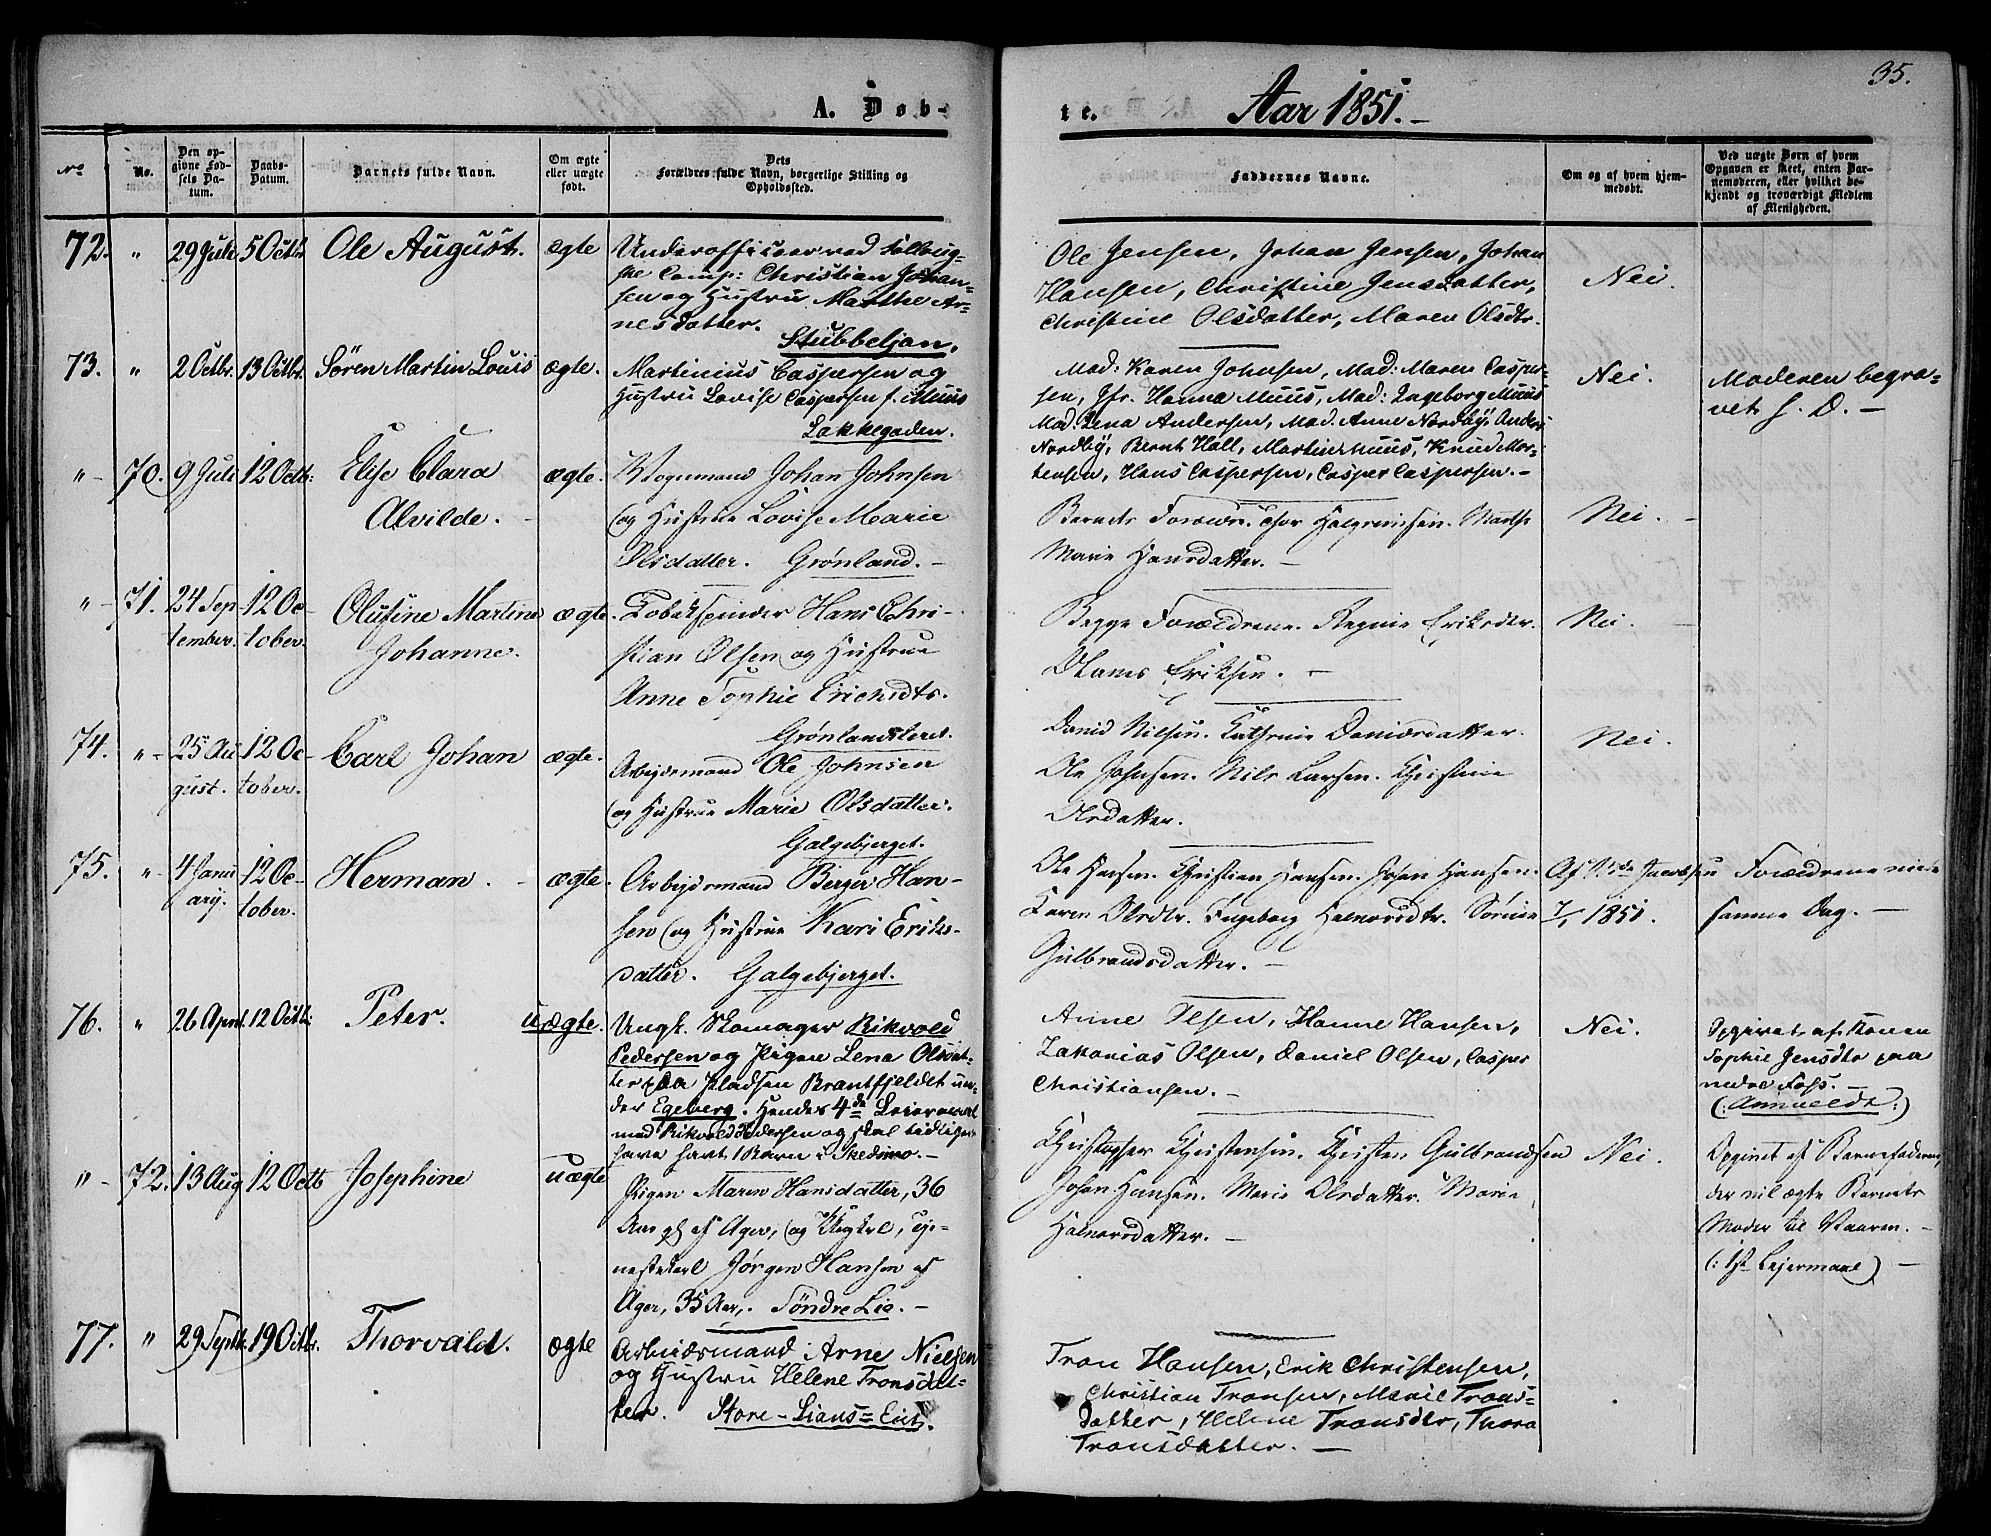 A. Døb-
te.
Aar 1851.
35.
No
No.
Den op-
givne Fød-
sels Da-
tum.
Daabs-
Datum.
Barnets fulde Navn.
Om ægte
eller uægte
født.
Dets
Forældres fulde Navn, borgerlige Stilling og
Opholdssted.
Faddernes Navne.
Om og af hvem hjem-
medøbt.
Ved uægte Børn af hvem
Opgaven er skeet, enten Bar-
nemoderen, eller hvilket be-
kjendt og troværdigt Medlem
af Menigheden.
72. " 29 Juli 5 Octbr Ole August. ægte
Underofficeer ved
Comp: Christian Johan-
sen og Hustru Marthe Ar-
nesdatter.
Stubbeljan.
Ole Jensen, Johan Jensen, Johan
Hansen, Christine Jensdatter,
Christine Olsdatter, Maren Olsdtr.
Nei.
73. " 2 Octbr. 13 Octbr. Søren Martin Louis ægte.
Martinius Caspersen og
Hustru Lovise Caspersen f. Muus
Lakkegaden.
Mad: Karen Johnsen, Mad: Maren Casper-
sen, Jfr. Hanna Muus, Mad: Ingeborg Muus
Mad. Lena Andersen, Mad. Anne Nordby, Anders
Nordby, Bernt Hall, Martin Muus, Knud Mor-
tensen, Hans Caspersen, Casper Caspersen.
Nei.
Moderen begra-
vet s. D.
" 70. 9 Juli 12 Octb: Elise Clara ægte.
Alvilde.
Vognmand Johan Johnsen
og Hustrue Lovise Marie
Olsdatter. Grønland.
Barnets Forældre. Thor Halgrimsen. Marthe
Marie Hansdatter.
Nei.
" 71. 24 Sep- 12 Oc- Olufine Martine ægte.
tember. tober. Johanne.
Tobakspinder Hans Chri-
stian Olsen og Hustrue
Anne Sophie Erichsdtr.
Grønlandsleret.
Begge Forældrene. Eriksdtr.
Eriksen.
Nei.
74. " 25 Au- 12 Oc- Carl Johan ægte.
gust. tober.
Arbeidsmand Ole Johnsen
og Hustrue Marie Olsdatter.
Galgebjerget.
David Nilsen. Danielsdatter.
Ole Johnsen. Nils Larsen. Christine
Olsdatter.
Nei.
75. " 4 Janu- 12 Oc- Herman. ægte.
ary. tober.
Arbeidsmand Berger Han-
sen og Hustrue Kari Eriks-
datter. Galgebjerget.
Ole Hansen. Christian Hansen. Johan Hansen.
Karen Olsdtr. Ingeborg Halvorsdtr.
Gulbrandsdatter.
Af Jacobsen
7/1 1851.
Forældrene viede
samme Dag.
76. " 26 April 12 Octb: Peter. uægte.
Ungk. Skomager Rikvold
Pedersen og Pigen Lena Olsdat-
ter paa Pladsen Brantfjeldet un-
der Egeberg. Hendes 4de Leiermaal
med Rikvold Pedersen og skal tidligere
have havt 1 Barn i Skedsmo.
Anne Olsen, Hanne Hansen,
Zakarias Olsen, Daniel Olsen, Casper
Christiansen.
Nei.
Opgivet af Konen
Sophie Jensdtr paa
nedre Foss.
(: Anmeldt :)
" 72. 13 Aug 12 Octb Josephine uægte
Pigen Maren Hansdatter, 36
Aar gl. af Ager, og Ungkarl, tje-
nestekarl Jørgen Hansen af
Ager, 35 Aar. Søndre Lie.
Christopher Christensen. Christen Gulbrandsen
Johan Hansen. Marie Olsdatter. Maria
Halvorsdatter.
Nei.
Opgivet af Barnefaderen,
der vil ægte Barnets
Moder til Vaaren.
(: 1ste Lejermaal)
77. " 29 Septb. 19 Octbr. Thorvald. ægte
Arbeidsmand Arne Nielsen
og Hustru Helene Tronsdat-
ter. Store-Lians-Eie.
Tron Hansen, Erik Christensen,
Christian Tronsen, Marie Trons-
datter, Helene Tronsdtr, Thora
Tronsdatter.